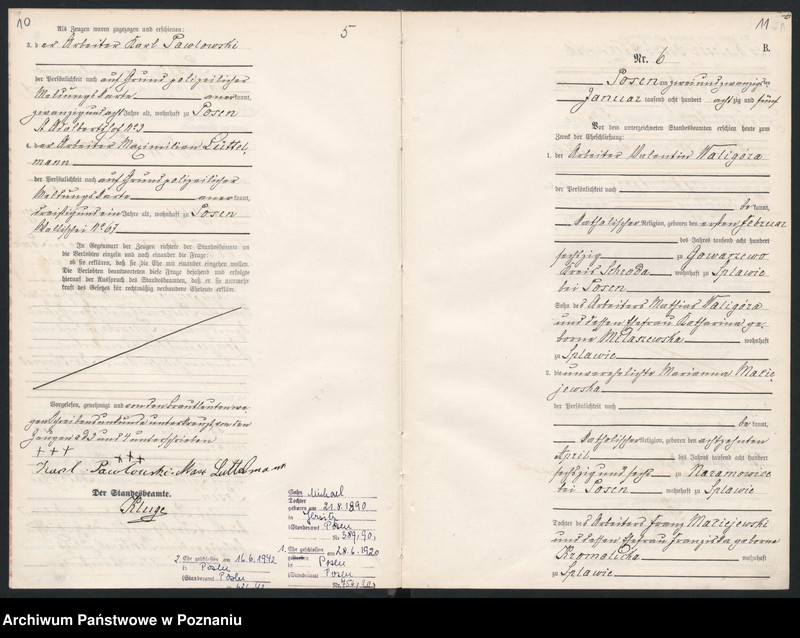 10
5
Als Zeugen waren zugezogen und erschienen:
3. der Arbeiter Karl Pawlowski
der Persönlichkeit nach auf Grund polizeilicher
Meldungskarte anerkannt,
zwanzigundacht Jahre alt, wohnhaft zu Posen
St. Adalberthof No 3
4. der Arbeiter Maximilian Luttel-
mann
der Persönlichkeit nach auf Grund polizeilicher
Meldungskarte anerkannt,
dreißigundein Jahre alt, wohnhaft zu Posen
Wallischei No 67
In Gegenwart der Zeugen richtete der Standesbeamte an
die Verlobten einzeln und nach einander die Frage:
ob sie erklären, daß sie die Ehe mit einander eingehen wollen.
Die Verlobten beantworteten diese Frage bejahend und erfolgte
hierauf der Ausspruch des Standesbeamten, daß er sie nunmehr
kraft des Gesetzes für rechtmäßig verbundene Eheleute erkläre.
Vorgelesen, genehmigt und von den Brautleuten we-
gen Schreibensunkunde unterkreuzt, von den
Zeugen ad 3 und 4 unterschrieben
+++
+++
Karl Pawlowski. Max Luttelmann
Der Standesbeamte.
Kluge
Sohn Michael
Tochter
geboren am 21.8.1890
in Jersitz
(Standesamt Posen
Nr 389/90)
1. Ehe geschlossen am 28.6.1920
in Posen
(Standesamt Posen
2. Ehe geschlossen am 16.6.1942
in Posen
(Standesamt Posen
11
B.
Nr. 6
Posen am zweiundzwanzigsten
Januar tausend acht hundert achtzig und fünf
Vor dem unterzeichneten Standesbeamten erschien heute zum
Zweck der Eheschließung:
1. der Arbeiter Valentin Waligóra
der Persönlichkeit nach
bekannt,
katholischer Religion, geboren den ersten Februar
des Jahres tausend acht hundert
sechszig zu Gowarzewo
Kreis Schroda wohnhaft zu Splawie
bei Posen
Sohn des Arbeiters Mathias Waligóra
und dessen Ehefrau Katharina ge-
borene Melaszewska wohnhaft
zu Splawie
2. die unverehelichte Marianna Macie-
jewska
der Persönlichkeit nach
bekannt,
katholischer Religion, geboren den achtzehnten
April des Jahres tausend acht hundert
sechszig und sechs zu Naramowice
bei Posen wohnhaft zu Splawie
Tochter des Arbeiters Franz Maciejewski
und dessen Ehefrau Franziska geborene
Kromalicka wohnhaft
zu Splawie
Archiwum Państwowe w Poznaniu